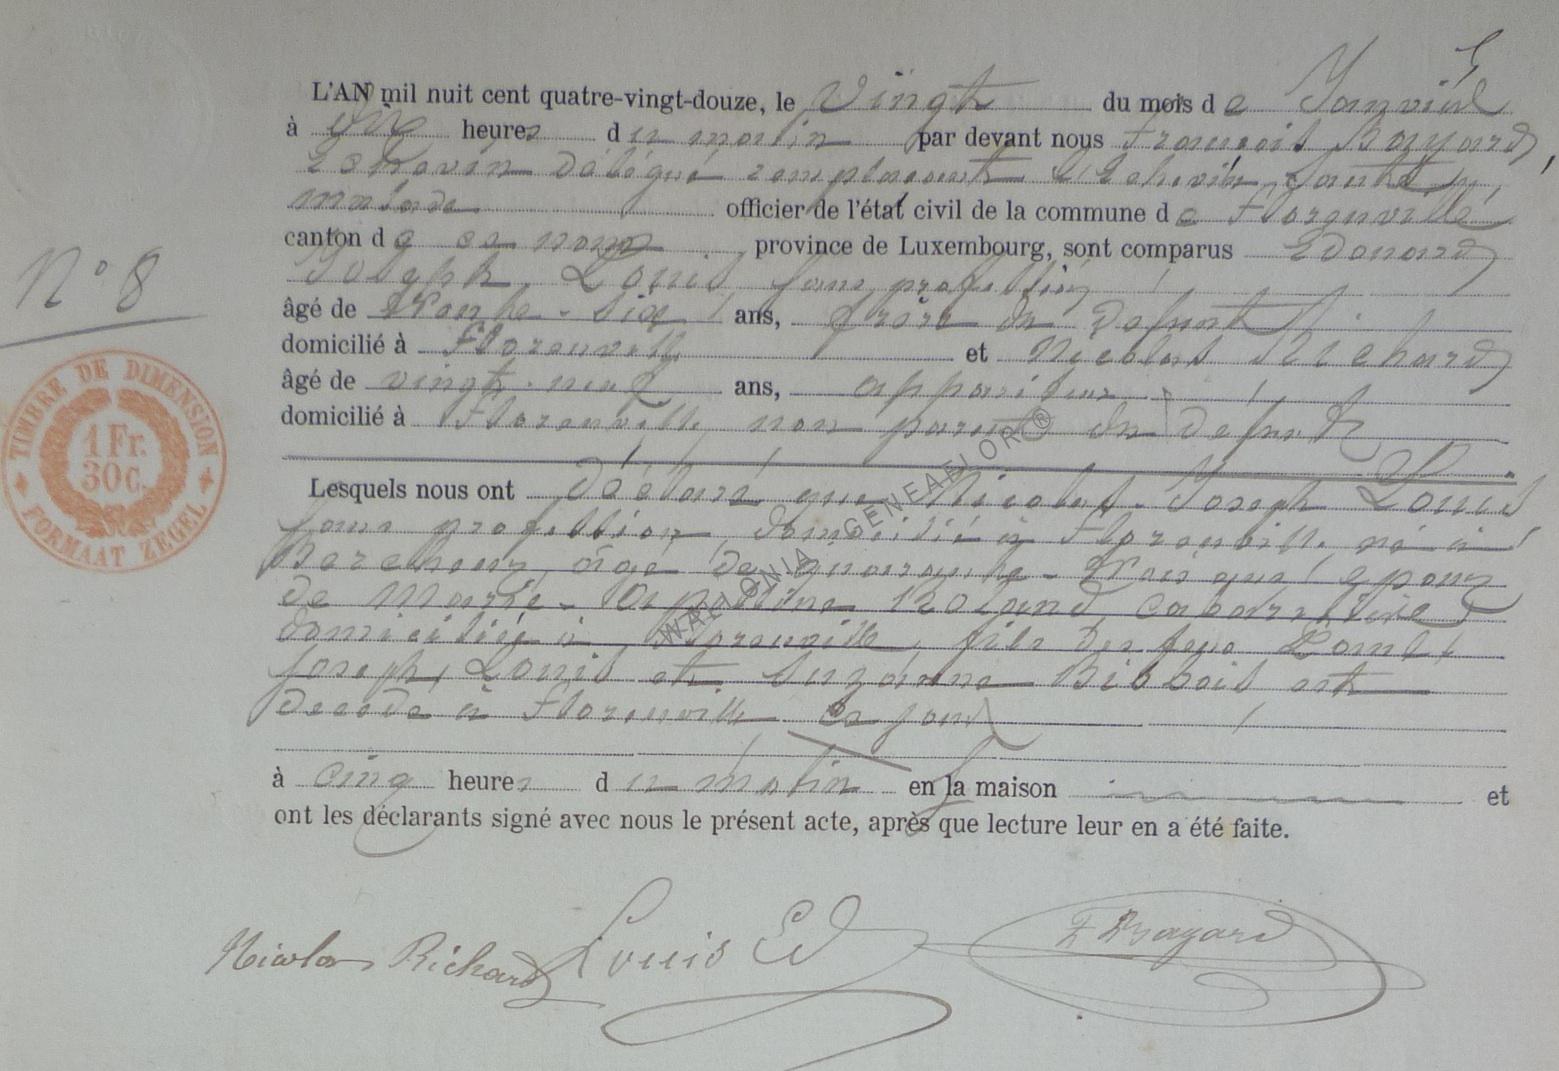 L'AN mil huit cent quatre-vingt-douze, le Vingt du mois de Janvier
à dix heures du matin par devant nous François Bayard,
Echevin délégué remplaçant l'Echevin
malade officier de l'état civil de la commune de Florenville
canton de ce nom province de Luxembourg, sont comparus Edouard
Joseph Louis sans profession
âgé de trente-six ans, frère du defunt
domicilié à Florenville et Nicolas Richard
âgé de vingt-neuf ans, appariteur
domicilié à Florenville, non parent du défunt
Lesquels nous ont déclaré que Nicolas-Joseph Louis
sans profession, domicilié à Florenville né à
âgé de quarante-trois ans, epoux
de Marie- cabaretière
domiciliée à Florenville, fils des feus
Joseph Louis et Suzanne est
décédé à Florenville ce jour
à cinq heures du matin en la maison et
ont les déclarants signé avec nous le présent acte, après que lecture leur en a été faite.
Nicolas Richard Louis Ed F Bayard
N° 8
TIMBRE DE DIMENSION
1 Fr.
30 C.
FORMAAT ZEGEL
WALLONIA GENEAFLOR®